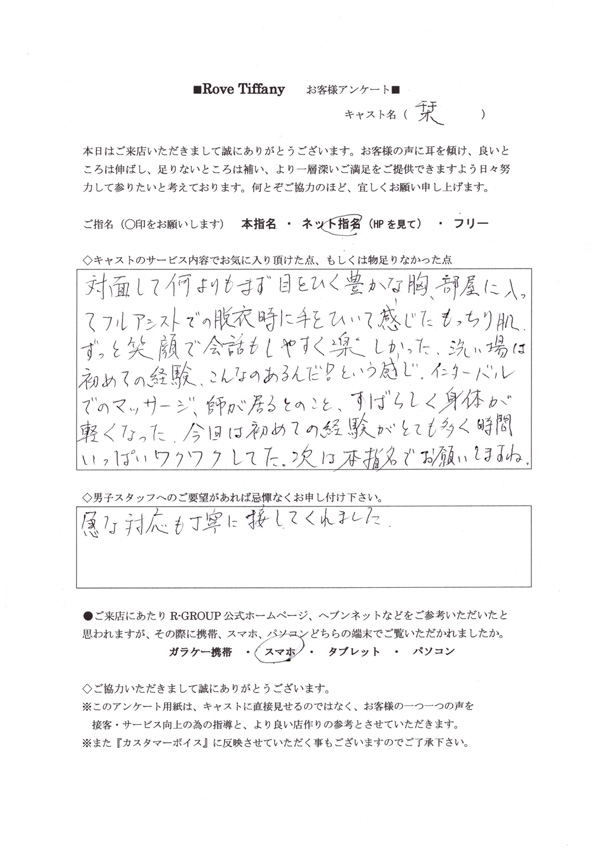 ■Rove Tiffany お客様アンケート■
キャスト名（ 栞 ）
本日はご来店いただきまして誠にありがとうございます。お客様の声に耳を傾け、良いと
ころは伸ばし、足りないところは補い、より一層深いご満足をご提供できますよう日々努
力して参りたいと考えております。何とぞご協力のほど、宜しくお願い申し上げます。
ご指名（〇印をお願いします） 本指名 ・ ネット指名（HPを見て） ・ フリー
◇キャストのサービス内容でお気に入り頂けた点、もしくは物足りなかった点
対面して何よりもまず目をひく豊かな胸、部屋に入っ
てフルアシストでの脱衣時に手をひいて感じたもっちり肌.
ずっと笑顔で会話もしやすく楽しかった. 洗い場は
初めての経験、こんなのあるんだ!という感じ. インターバル
でのマッサージ、師が居るとのこと、すばらしく身体が
軽くなった. 今回は初めての経験がとても多く時間
いっぱいワクワクしてた. 次は本指名でお願いしますね.
◇男子スタッフへのご要望があれば忌憚なくお申し付け下さい。
急な対応も丁寧に接してくれました.
●ご来店にあたり R-GROUP公式ホームページ、ヘブンネットなどをご参考いただいたと
思われますが、その際に携帯、スマホ、パソコンどちらの端末でご覧いただかれましたか。
ガラケー携帯 ・ スマホ ・ タブレット ・ パソコン
◇ご協力いただきまして誠にありがとうございます。
※このアンケート用紙は、キャストに直接見せるのではなく、お客様の一つ一つの声を
接客・サービス向上の為の指導と、より良い店作りの参考とさせていただきます。
※また『カスタマーボイス』に反映させていただく事もございますのでご了承下さい。